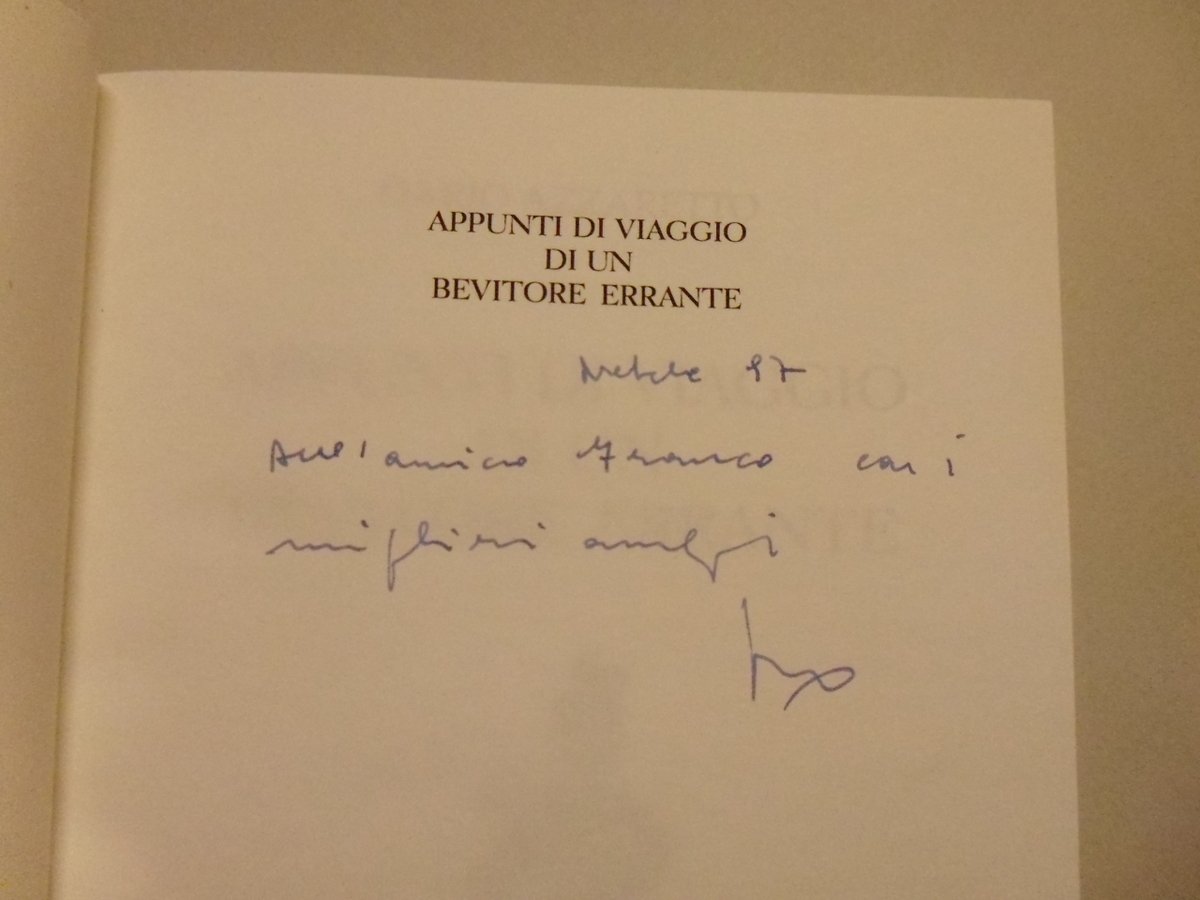 APPUNTI DI VIAGGIO
DI UN
BEVITORE ERRANTE
Natale 97
All'amico Franco con i
migliori auguri